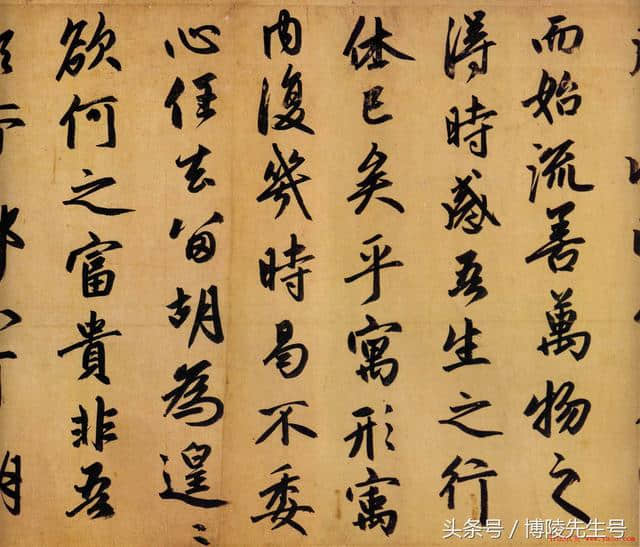 而始流善萬物之
得時感吾生之行
休已矣乎寓形寓
内復幾時曷不委
心任去留胡為遑〻
欲何之富貴非吾
头条号 / 博陵先生号